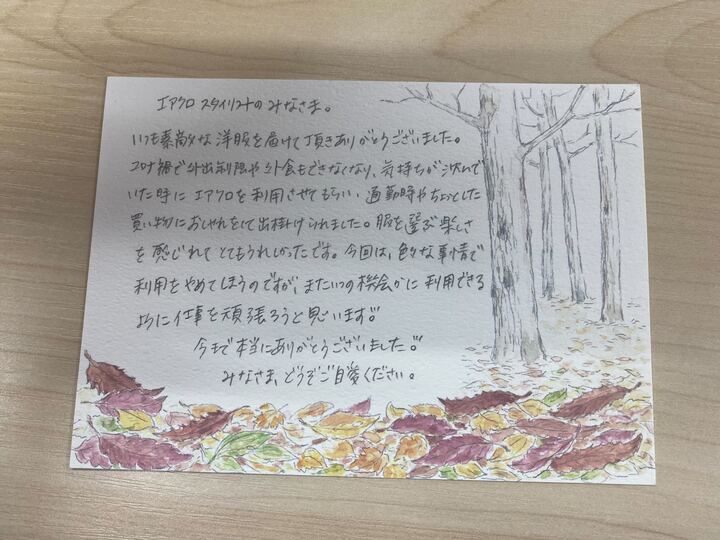 エアクロ スタイリストの みなさま。
いつも素敵な洋服を届けて頂きありがとうございました。
コロナ禍で外出制限や外食もできなくなり、気持ちが沈んで
いた時に エアクロを利用させてもらい、通勤時やちょっとした
買い物におしゃれをして出掛けられました。服を選ぶ楽しさ
を感じれて とてもうれしかったです。今回は、色々な事情で
利用をやめてしまうのですが、またいつの機会かに 利用できる
ように仕事を頑張ろうと思います!!
今まで本当にありがとうございました!!
みなさま、どうぞご自愛ください。